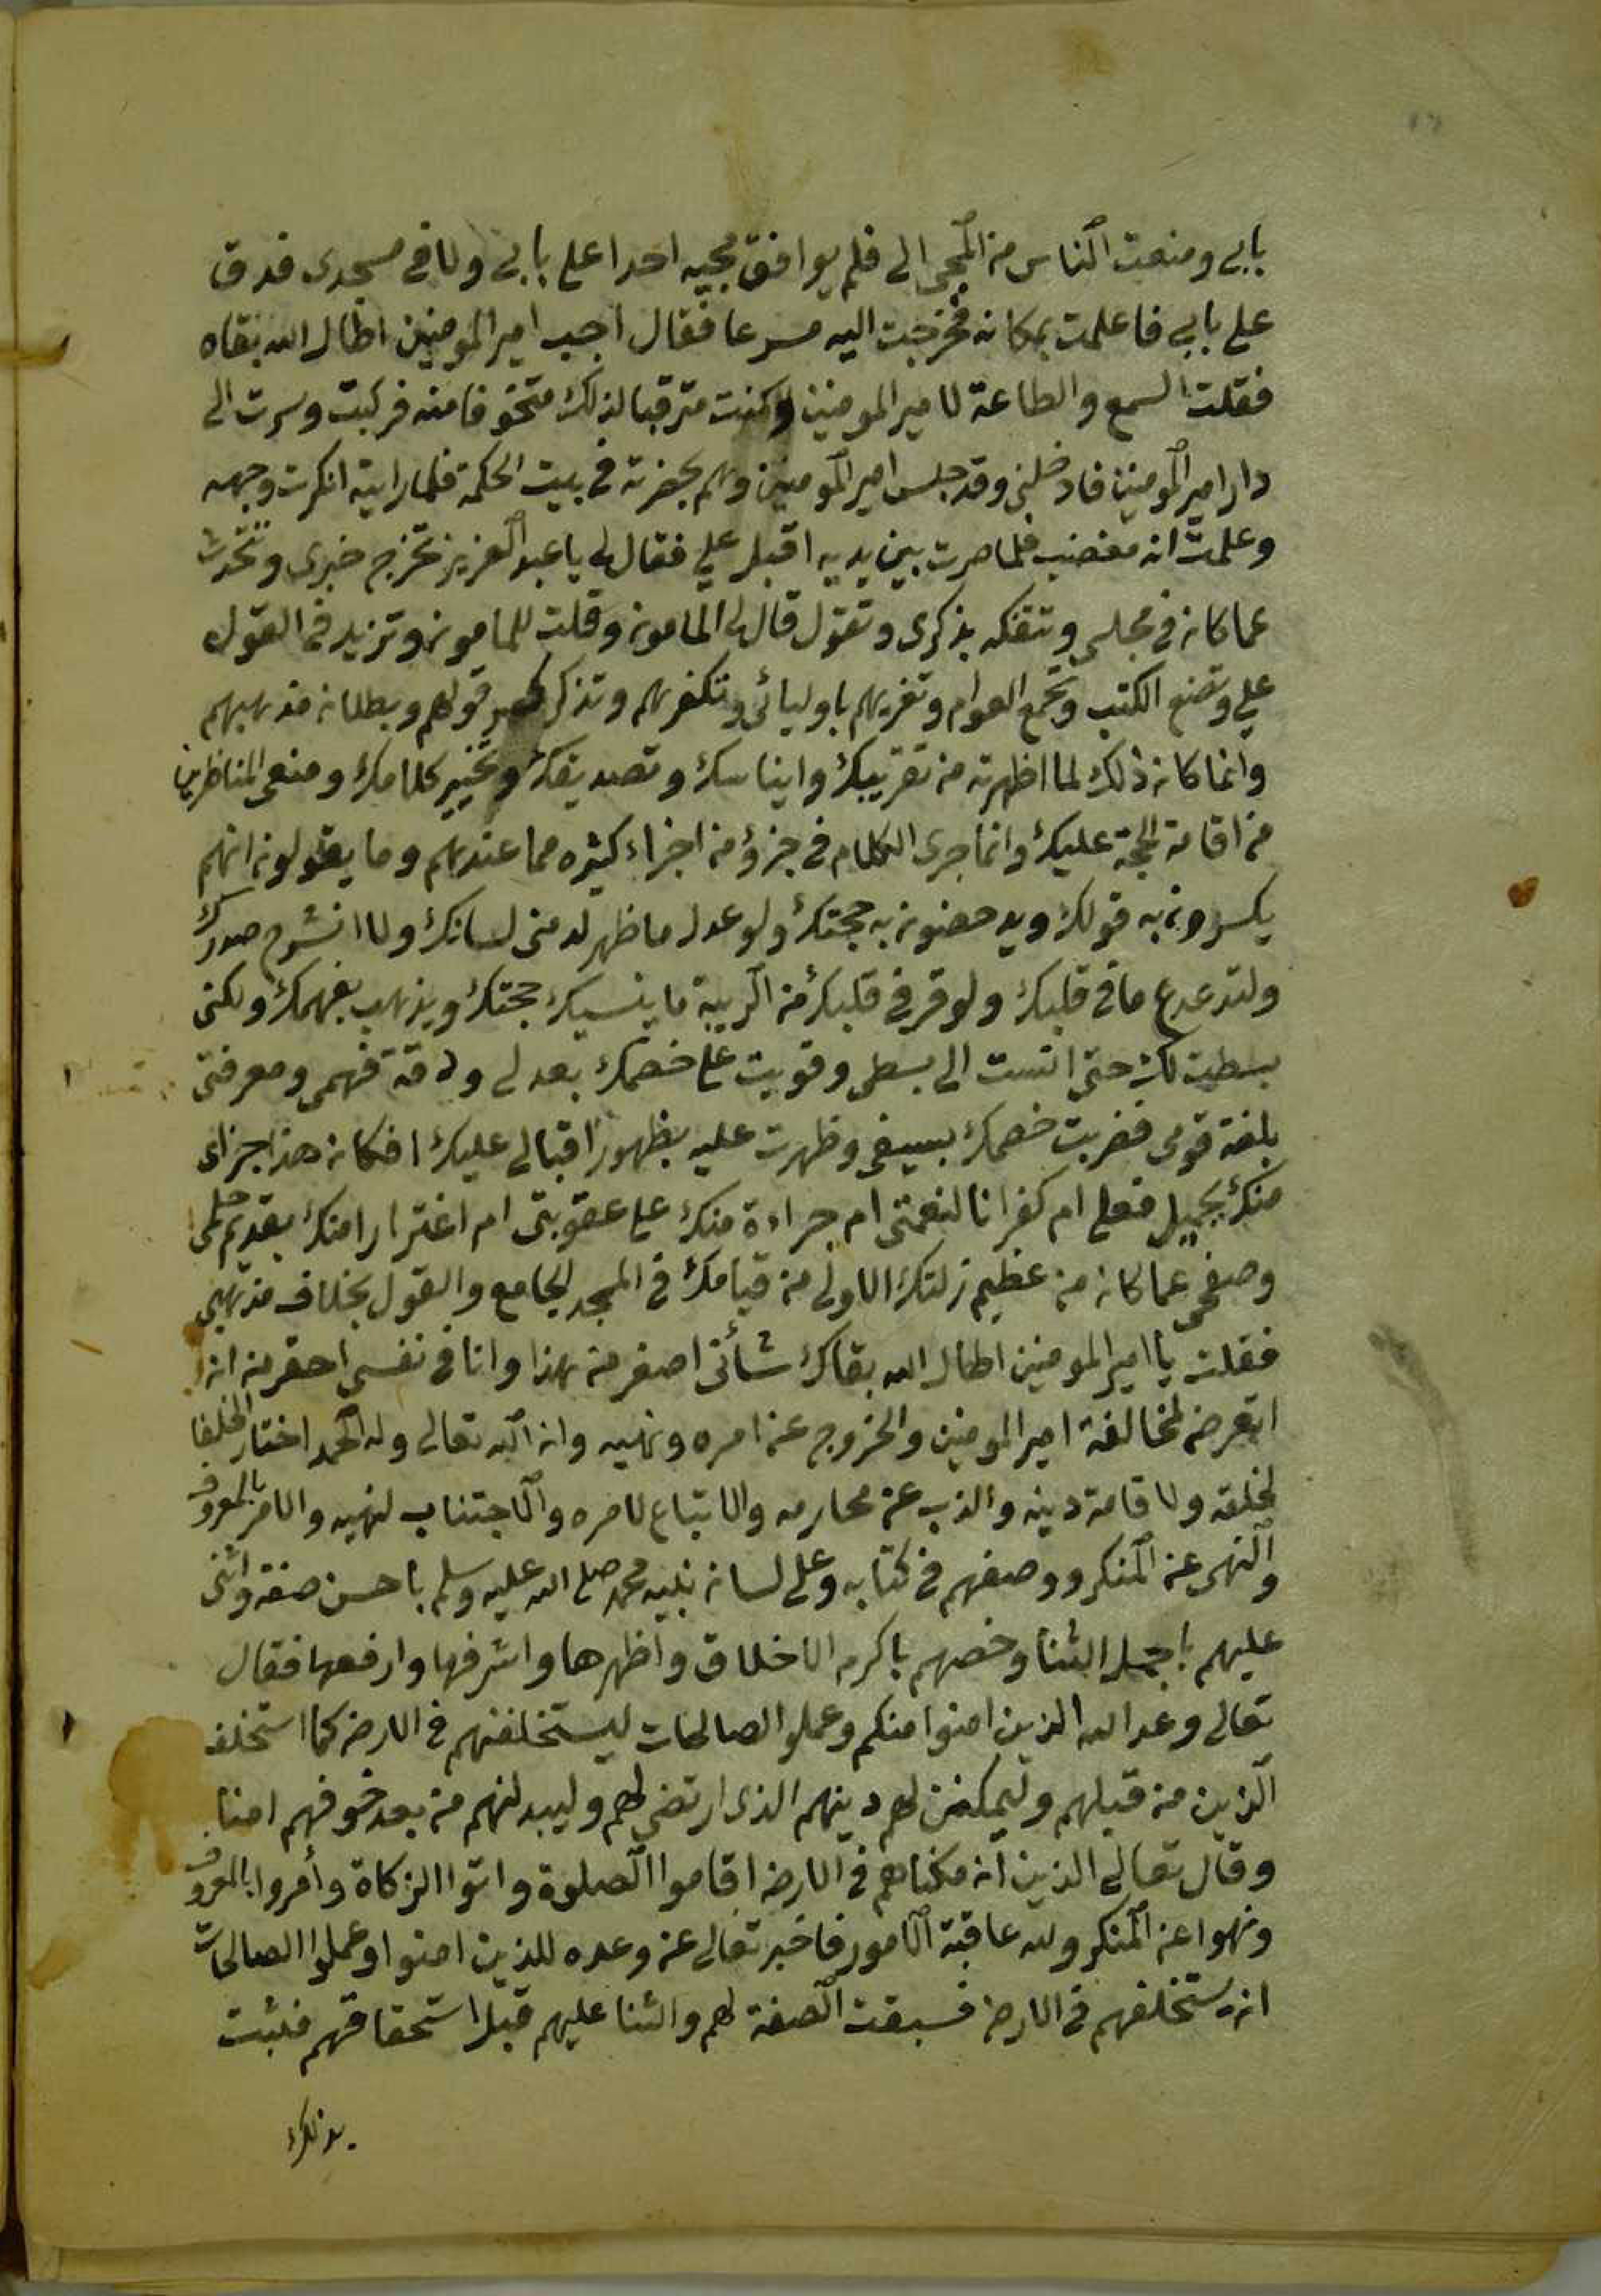 بابى ومنعت الناس من المجى الى فلم يوافق مجيه احدا على بابى ولا فى مسجدى فدق
على بابى فاعلمت بمكانه فخرجت اليه مسرعا فقال اجب امير المومنين اطال الله بقاه
فقلت السمع والطاعة لامير المومنين وكنت مترقبا لذلك متخوفا منه فركبت وسرت الى
دار امير المومنين فادخلنى وقد جلس امير المومنين وهم بحضرته فى بيت الحكمة فلما رايته انكرت وجهه
وعلمت انه مغضب فلما صرت بين يديه اقبل على فقال لى يا عبد العزيز تخرج خبرى وتتحدث
عما كان فى مجلسى وتتفكه بذكرى وتقول قال لى المامون وقلت للمامون وتزيد فى القول
على وتضع الكتب وتجمع العوام وتغريهم باوليائى وتكفرهم وتذكر قولهم وبطلان مذهبهم
وانما كان ذلك لما اظهرته من تقريبك وايناسك وتصديقك وتخيير كلامك ومنعى المناظرين
من اقامة الحجة عليك وانما جرى الكلام فى جزؤ من اجزاء كثيره مما عندهم وما يقولون انهم
يكسرون به قولك ويدحضون به حجتك ولو عدل ما ظهر له منى لسانك ولا انشرح صدرك
ولتدعدع ما فى قلبك ولوقر فى قلبك من الريبة ما ينسيك حجتك ويذهب بفهمك ولكنى
بسطت لك حتى انست الى بسطى وقويت على خصمك بعدلى ودقة فهمى ومعرفتى
بلغة قومى فضربت خصمك بسيفى وظهرت عليه بظهور اقبالى عليك افكان هذا جزاى
منك بجميل فعلى ام كفرانا لنعمتى ام جراءة منك على عقوبتى ام اغترارا منك بقديم حلمى
وصفحى عما كان من عظيم زلتك الاولى من قيامك فى المسجد الجامع والقول بخلاف مذهبى
فقلت يا امير المومنين اطال الله بقاك شأنى اصغر من هذا وانا فى نفسى احقر من ان
اتعرض لمخالفة امير المومنين والخروج عن امره ونهيه وان الله تعالى وله الحمد اختار الخلفا
لخلقه ولاقامة دينه والذب عن محارمه والاتباع لامره والاجتناب لنهيه والامر بالمعروف
والنهى عن المنكر ووصفهم فى كتابه وعلى لسان نبيه محمد صلى الله عليه وسلم باحسن صفة واثنى
عليهم باجمل الثنا وخصهم باكرم الاخلاق واظهرها واشرفها وارفعها فقال
تعالى وعد الله الذين امنوا منكم وعملوا الصالحات ليستخلفنهم فى الارض كما استخلف
الذين من قبلهم وليمكنن لهم دينهم الذى ارتضى لهم وليبدلنهم من بعد خوفهم امنا
وقال تعالى الذين ان مكناهم فى الارض اقاموا الصلوة واتوا الزكاة وأمروا بالمعروف
ونهوا عن المنكر ولله عاقبة الامور فاخبر تعالى عن وعده للذين امنوا وعملوا الصالحات
انه يستخلفهم فى الارض فسبقت الصفة لهم والثنا عليهم قبل استحقاقهم فثبت
بذلك